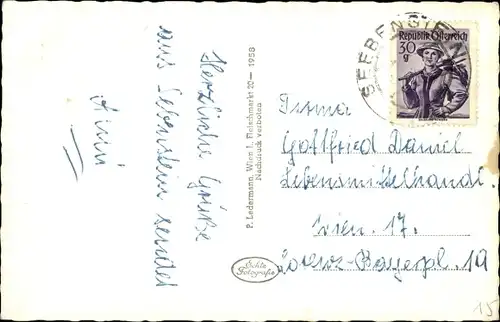 Herzliche Grüße
aus Sebenstein sendet
Anni
P. Ledermann, Wien I, Fleischmarkt 20 — 1958
Nachdruck verboten
Echte
Fotografie
SEEBENSTEIN
REPUBLIK ÖSTERREICH
30
g
Firma
Gottfried Daniel
Lebensmittelhandl.
Wien. 17.
Lorenz-Bayerpl. 19
15